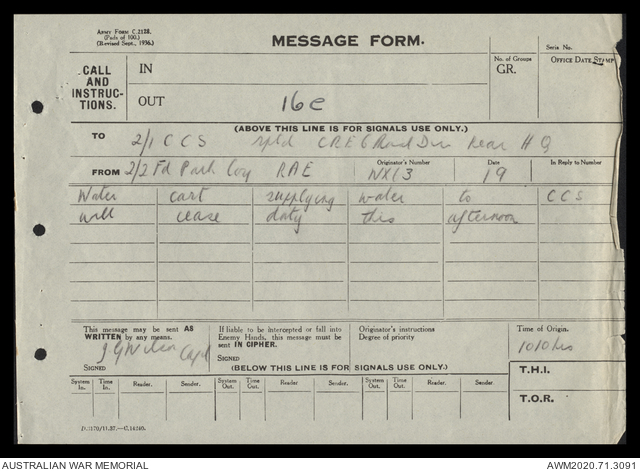 ARMY FORM C.2128.
(Pads of 100.)
(Revised Sept., 1936.)
MESSAGE FORM.
Serial No.
CALL AND INSTRUC-TIONS.
IN
No. of Groups
GR.
OFFICE DATE STAMP
OUT
16c
(ABOVE THIS LINE IS FOR SIGNALS USE ONLY.)
TO 2/1 CCS rptd CRE 6 Div Rear HQ
FROM 2/2 Fd Park Coy RAE
Originator's Number
Date
In Reply to Number
19
Water cart supplying water to CCS
will cease duty this afternoon
This message may be sent AS WRITTEN by any means.
If liable to be intercepted or fall into Enemy Hands, this message must be sent IN CIPHER.
Originator's instructions
Degree of priority
Time of Origin.
Capt
1010 hrs
SIGNED
SIGNED
(BELOW THIS LINE IS FOR SIGNALS USE ONLY.)
T.H.I.
System In.
Time In.
Reader.
Sender.
System Out.
Time Out.
Reader.
Sender.
System Out.
Time Out.
Reader.
Sender.
T.O.R.
AUSTRALIAN WAR MEMORIAL
AWM2020.71.3091